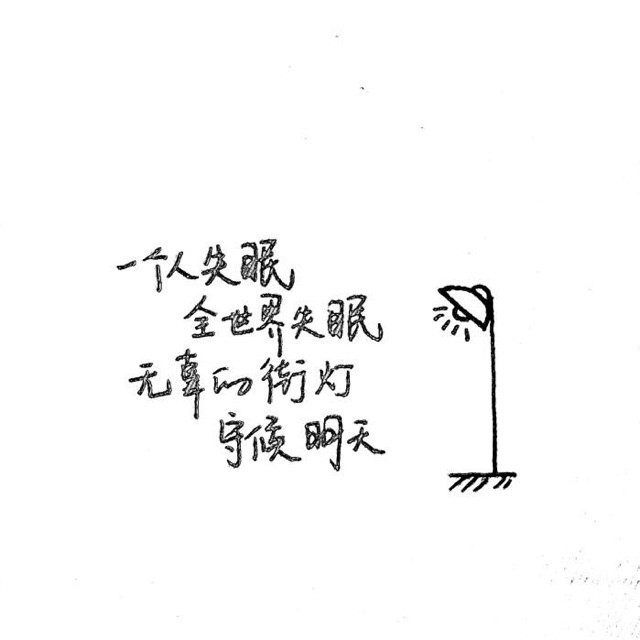 一个人失眠
全世界失眠
无辜的街灯
守候明天